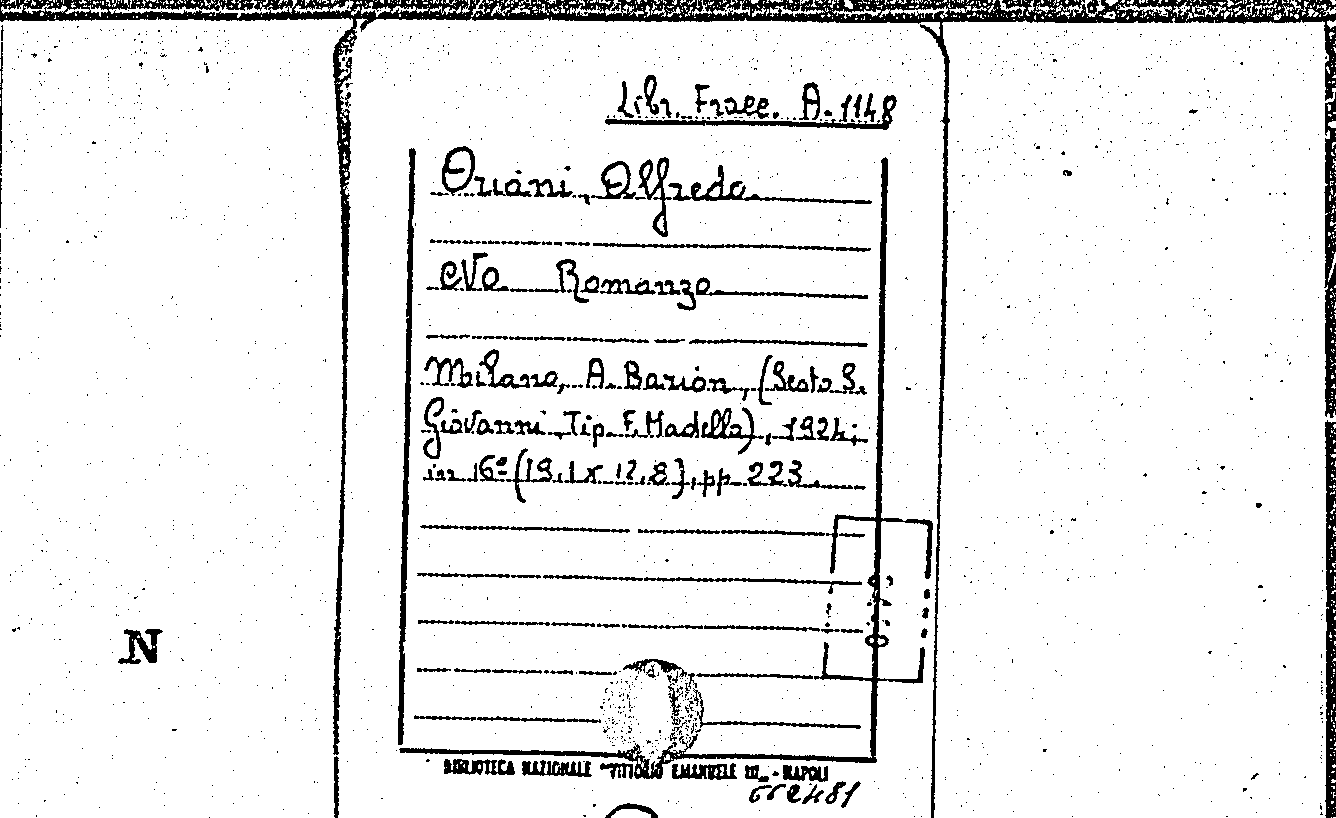 Libr. Fracc. A. 1148
Oriani, Alfredo.
No. Romanzo.
Milano, A. Barion, (Sesto S.
Giovanni, Tip. F. Madella), 1924;
in 16º (19,1 x 12,8), pp. 223.
N
BIBLIOTECA NAZIONALE "VITTORIO EMANUELE III" - NAPOLI